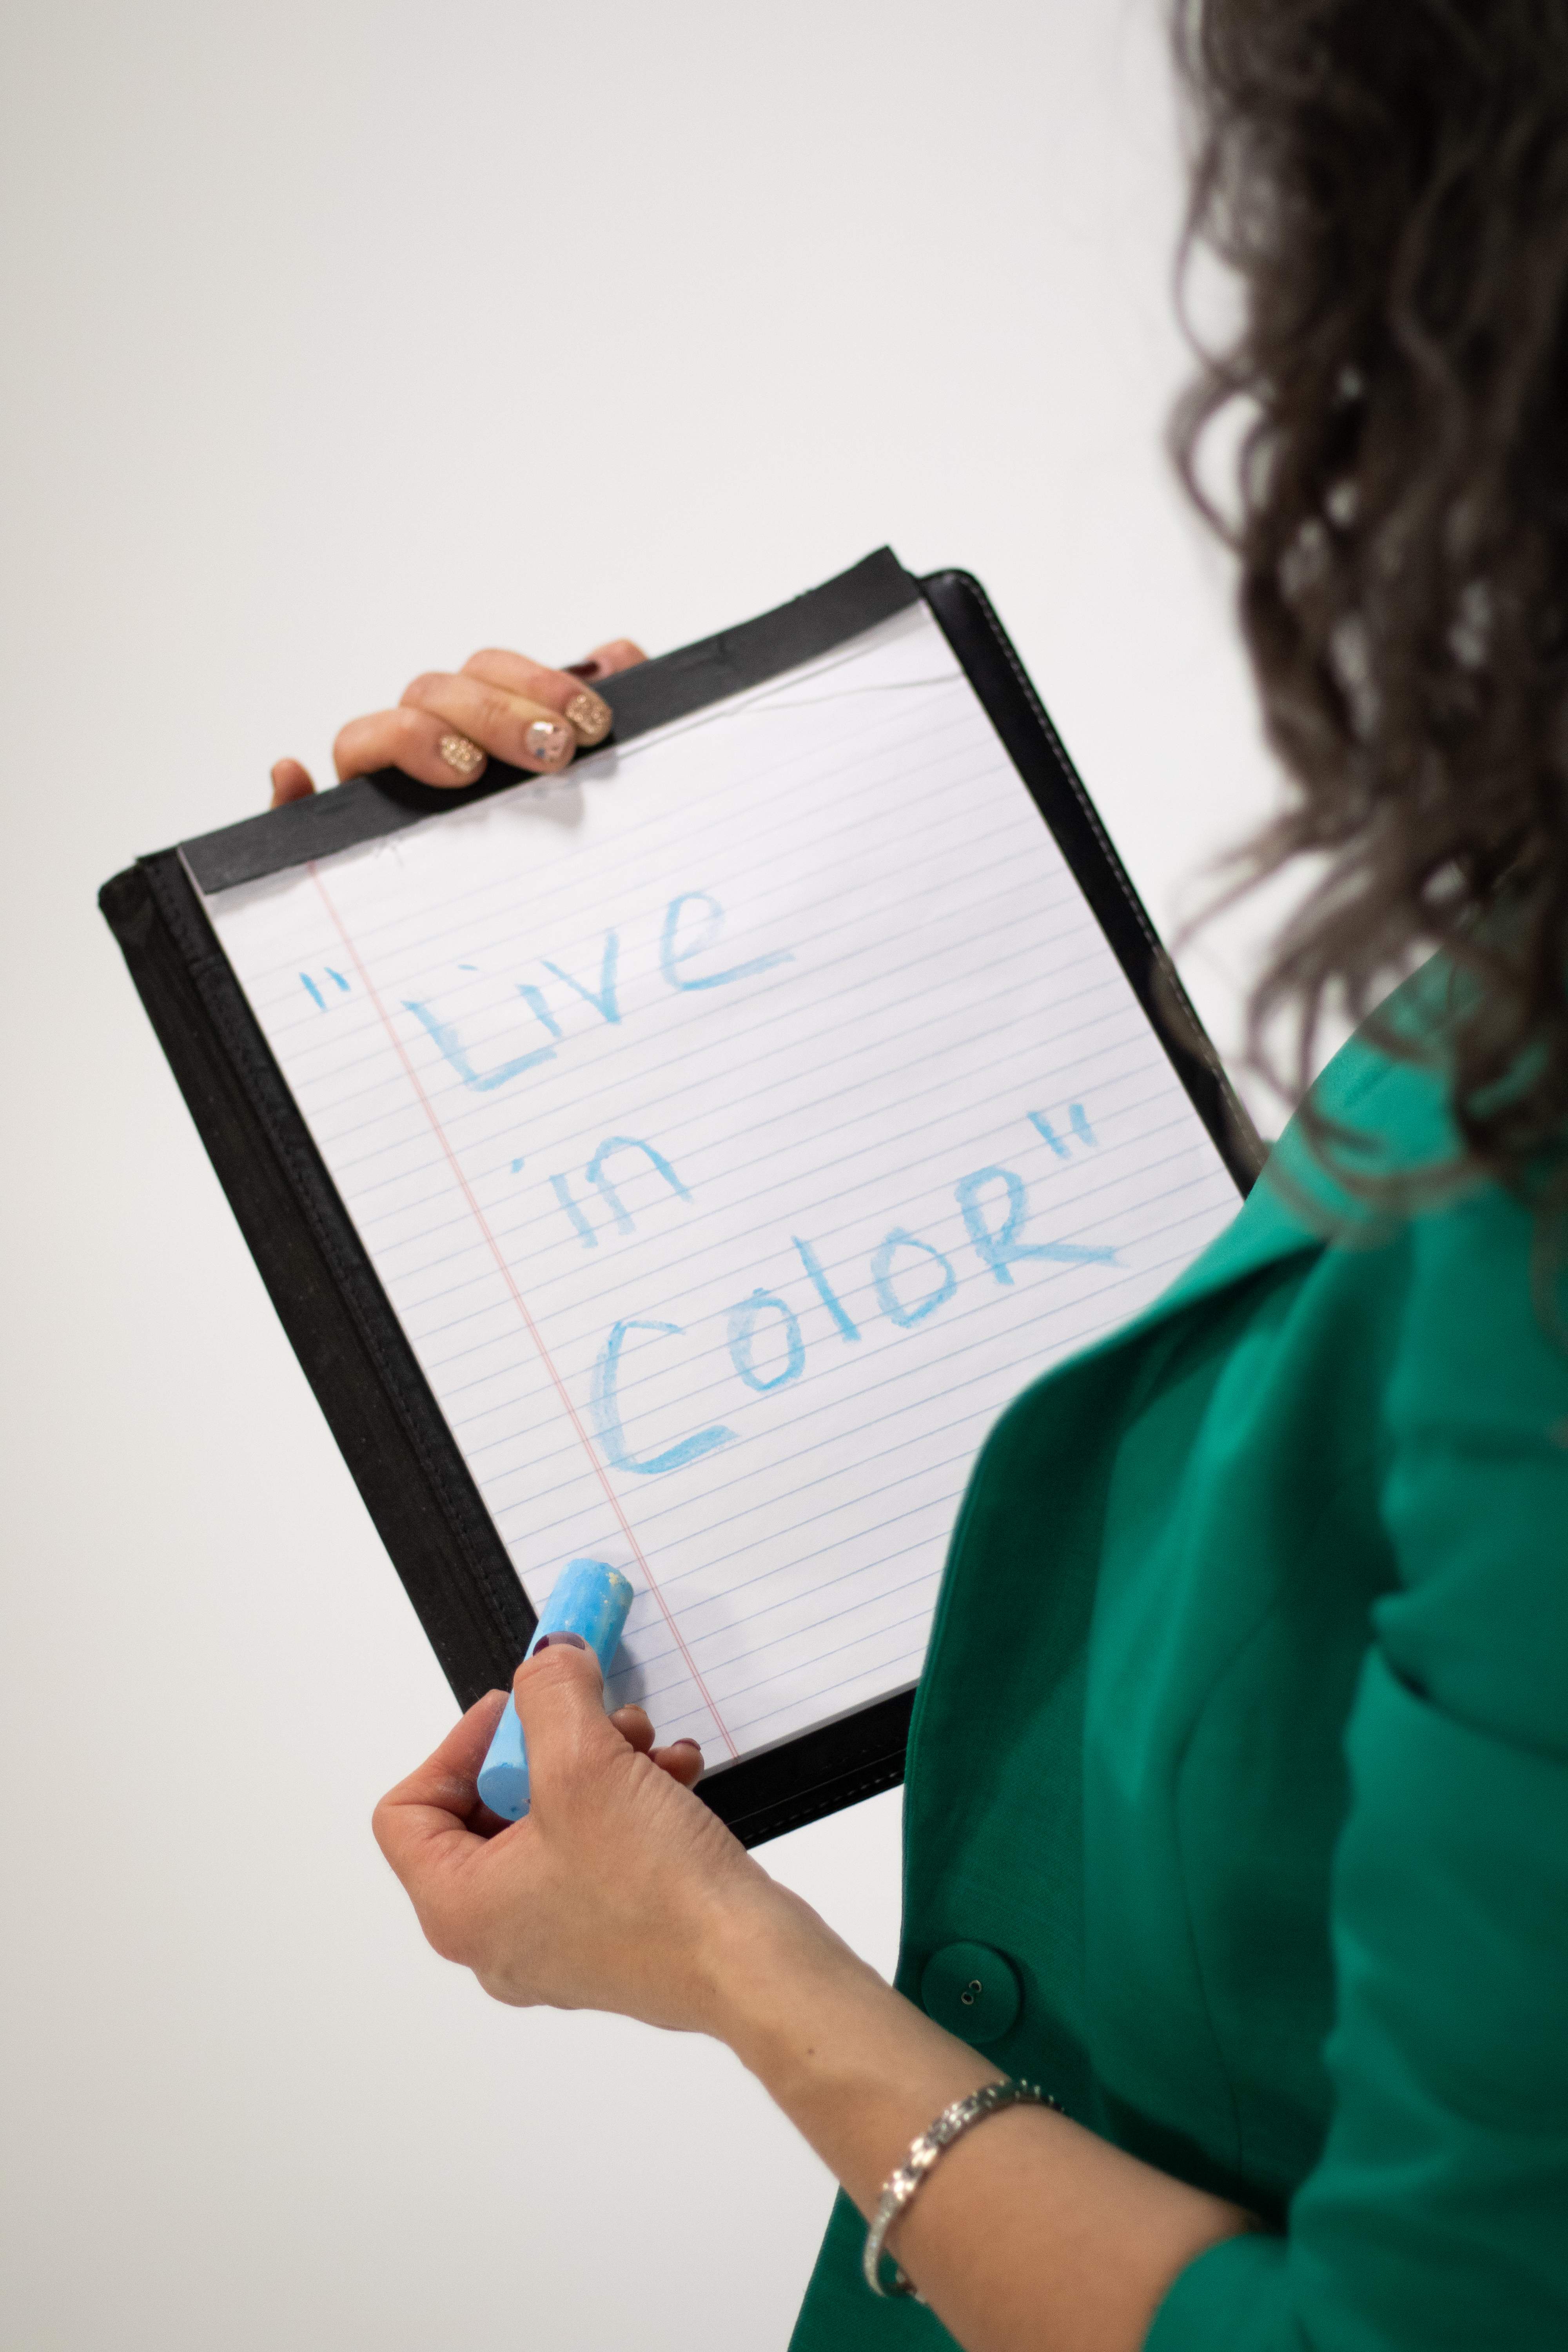 "Live
in
ColoR"